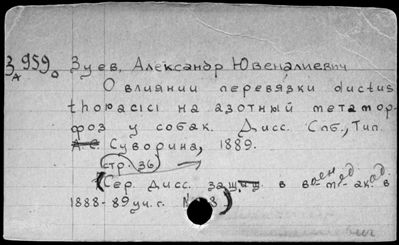 З 959 Зуев, Александр Ювеналиевич
А
О влиянии перевязки ductus
thoracici на азотный метамор-
фоз у собак. Дисс. Спб., Тип.
А.С. Суворина, 1889.
стр. 36)
(Сер. дисс. защищ. в военно-мед. ак. в
1888-89 уч. г. № 8)